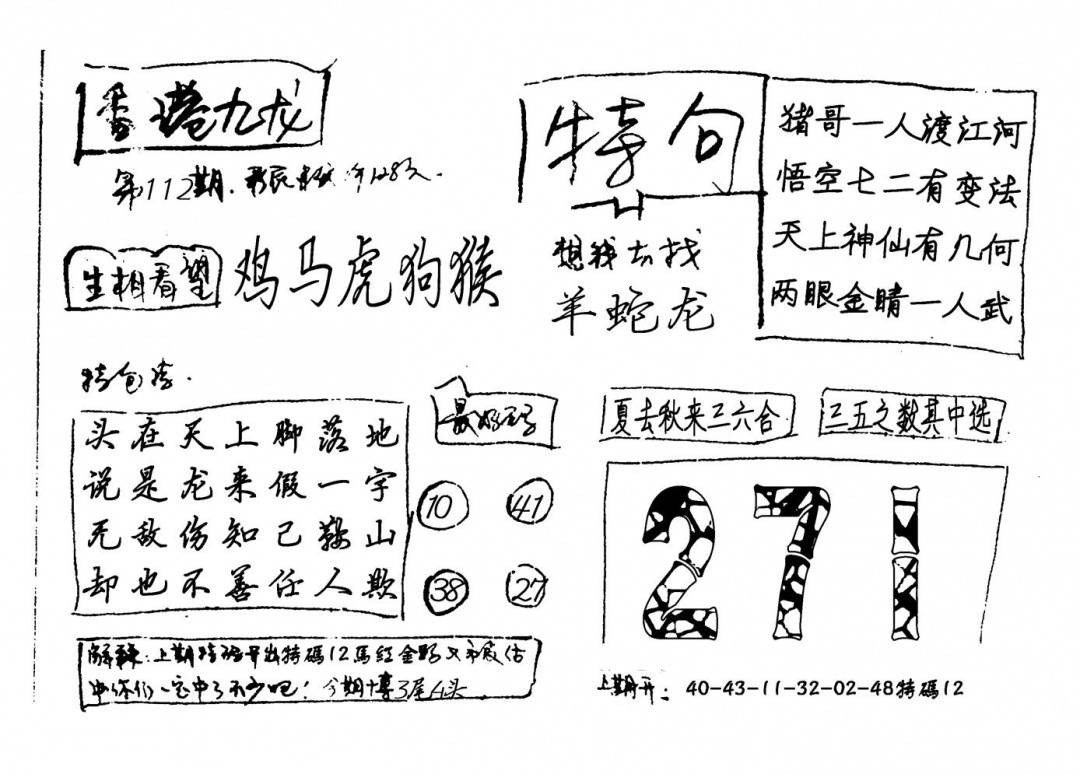 香港九龙
第112期.
生相看望
鸡马虎狗猴
特句
想我去找
羊蛇龙
猪哥一人渡江河
悟空七二有变法
天上神仙有几何
两眼金睛一人武
特包诗.
头在天上脚落地
说是龙来假一字
无敌伤知己鞍山
却也不善任人欺
10 41
38 27
夏去秋来二六合
三五之数其中选
271
上期开出特碼12馬紅
中你们一定中了不少吧!今期博
上期开: 40-43-11-32-02-48特碼12